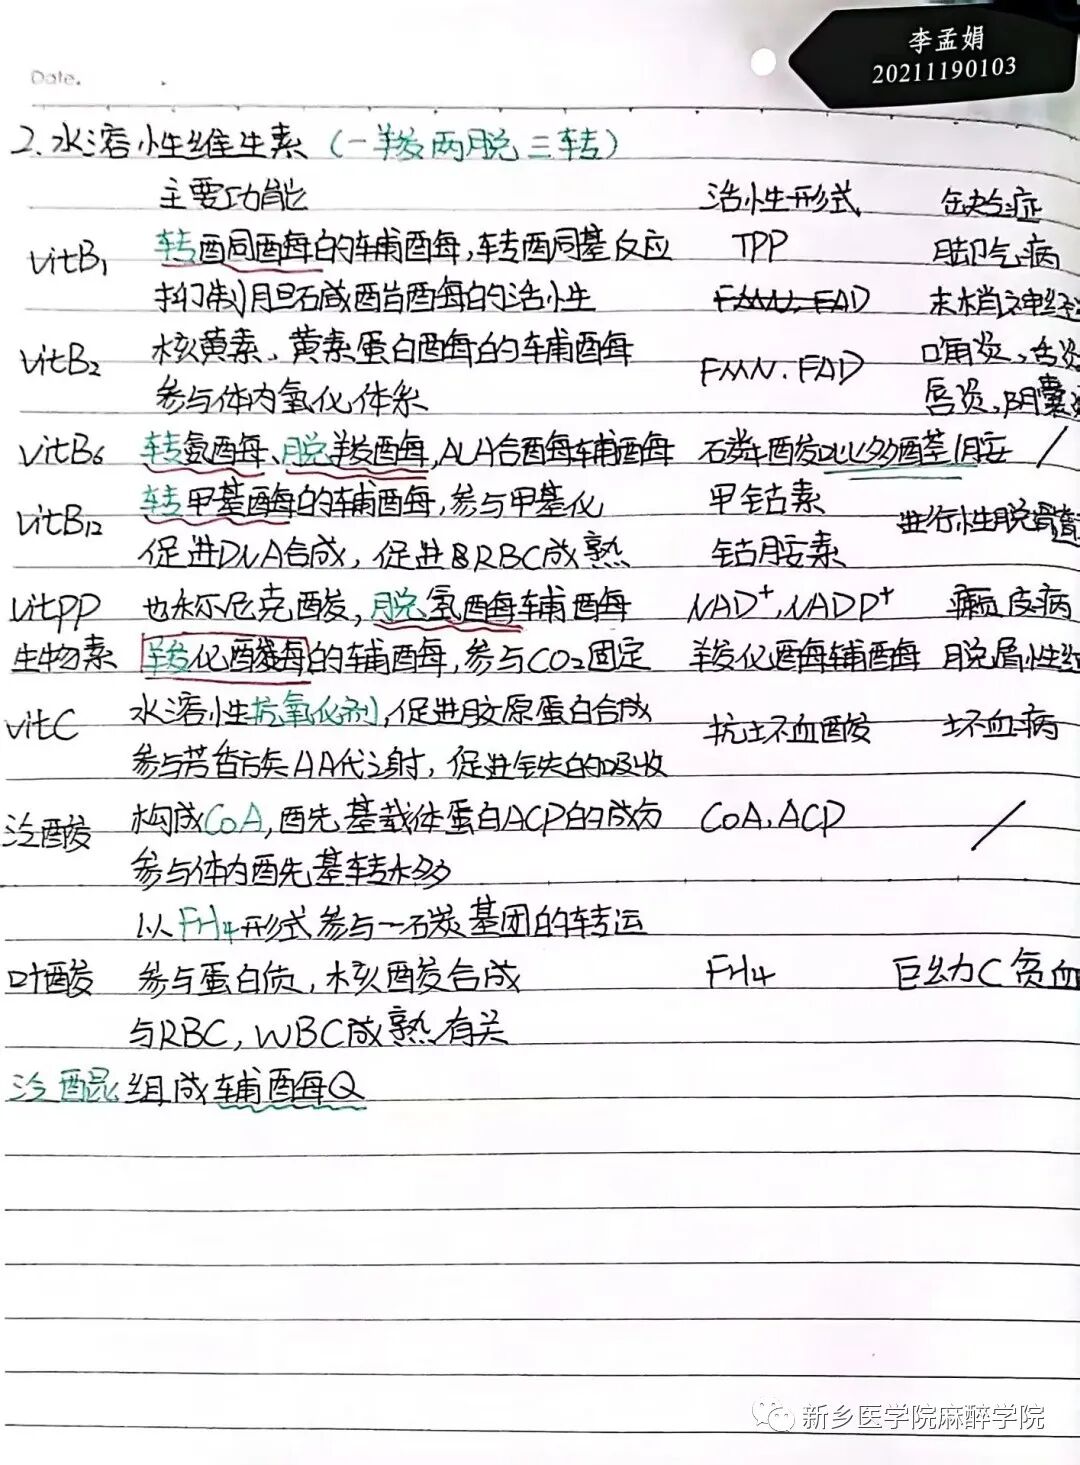 李孟娟
20211190103
Date.
2.水溶性维生素（一羧两脱三转）
主要功能 活性形式 缺治症
vitB₁ 转酮同酶的辅酶，转酮同基反应 TPP 脚气病
抑制胆碱酯酶的活性 FMN.FAD 末梢神经
vitB₂ 核黄素、黄素蛋白酶的辅酶 FMN.FAD 口角炎、舌炎
参与体内氧化体系 唇炎、阴囊
vitB₆ 转氨酶、脱羧酶，ALA合酶辅酶 磷酸吡哆醛/胺 /
vitB₁₂ 转甲基酶的辅酶，参与甲基化 甲钴素 进行性脱髓
促进DNA合成，促进RBC成熟 钴胺素
vitpp 也称尼克酸，脱氢酶辅酶 NAD⁺，NADP⁺ 癞皮病
生物素 羧化酶的辅酶，参与CO₂固定 羧化酶辅酶 脱屑性红
vitC 水溶性抗氧化剂，促进胶原蛋白合成 抗坏血酸 坏血病
参与芳香族AA代谢，促进铁的吸收
泛酸 构成CoA，酰基载体蛋白ACP的成分 CoA、ACP /
参与体内酰基转移
以FH₄形式参与一碳基团的转运
叶酸 参与蛋白质，核酸合成 FH₄ 巨幼C贫血
与RBC，WBC成熟有关
泛醌组成辅酶Q
新乡医学院麻醉学院